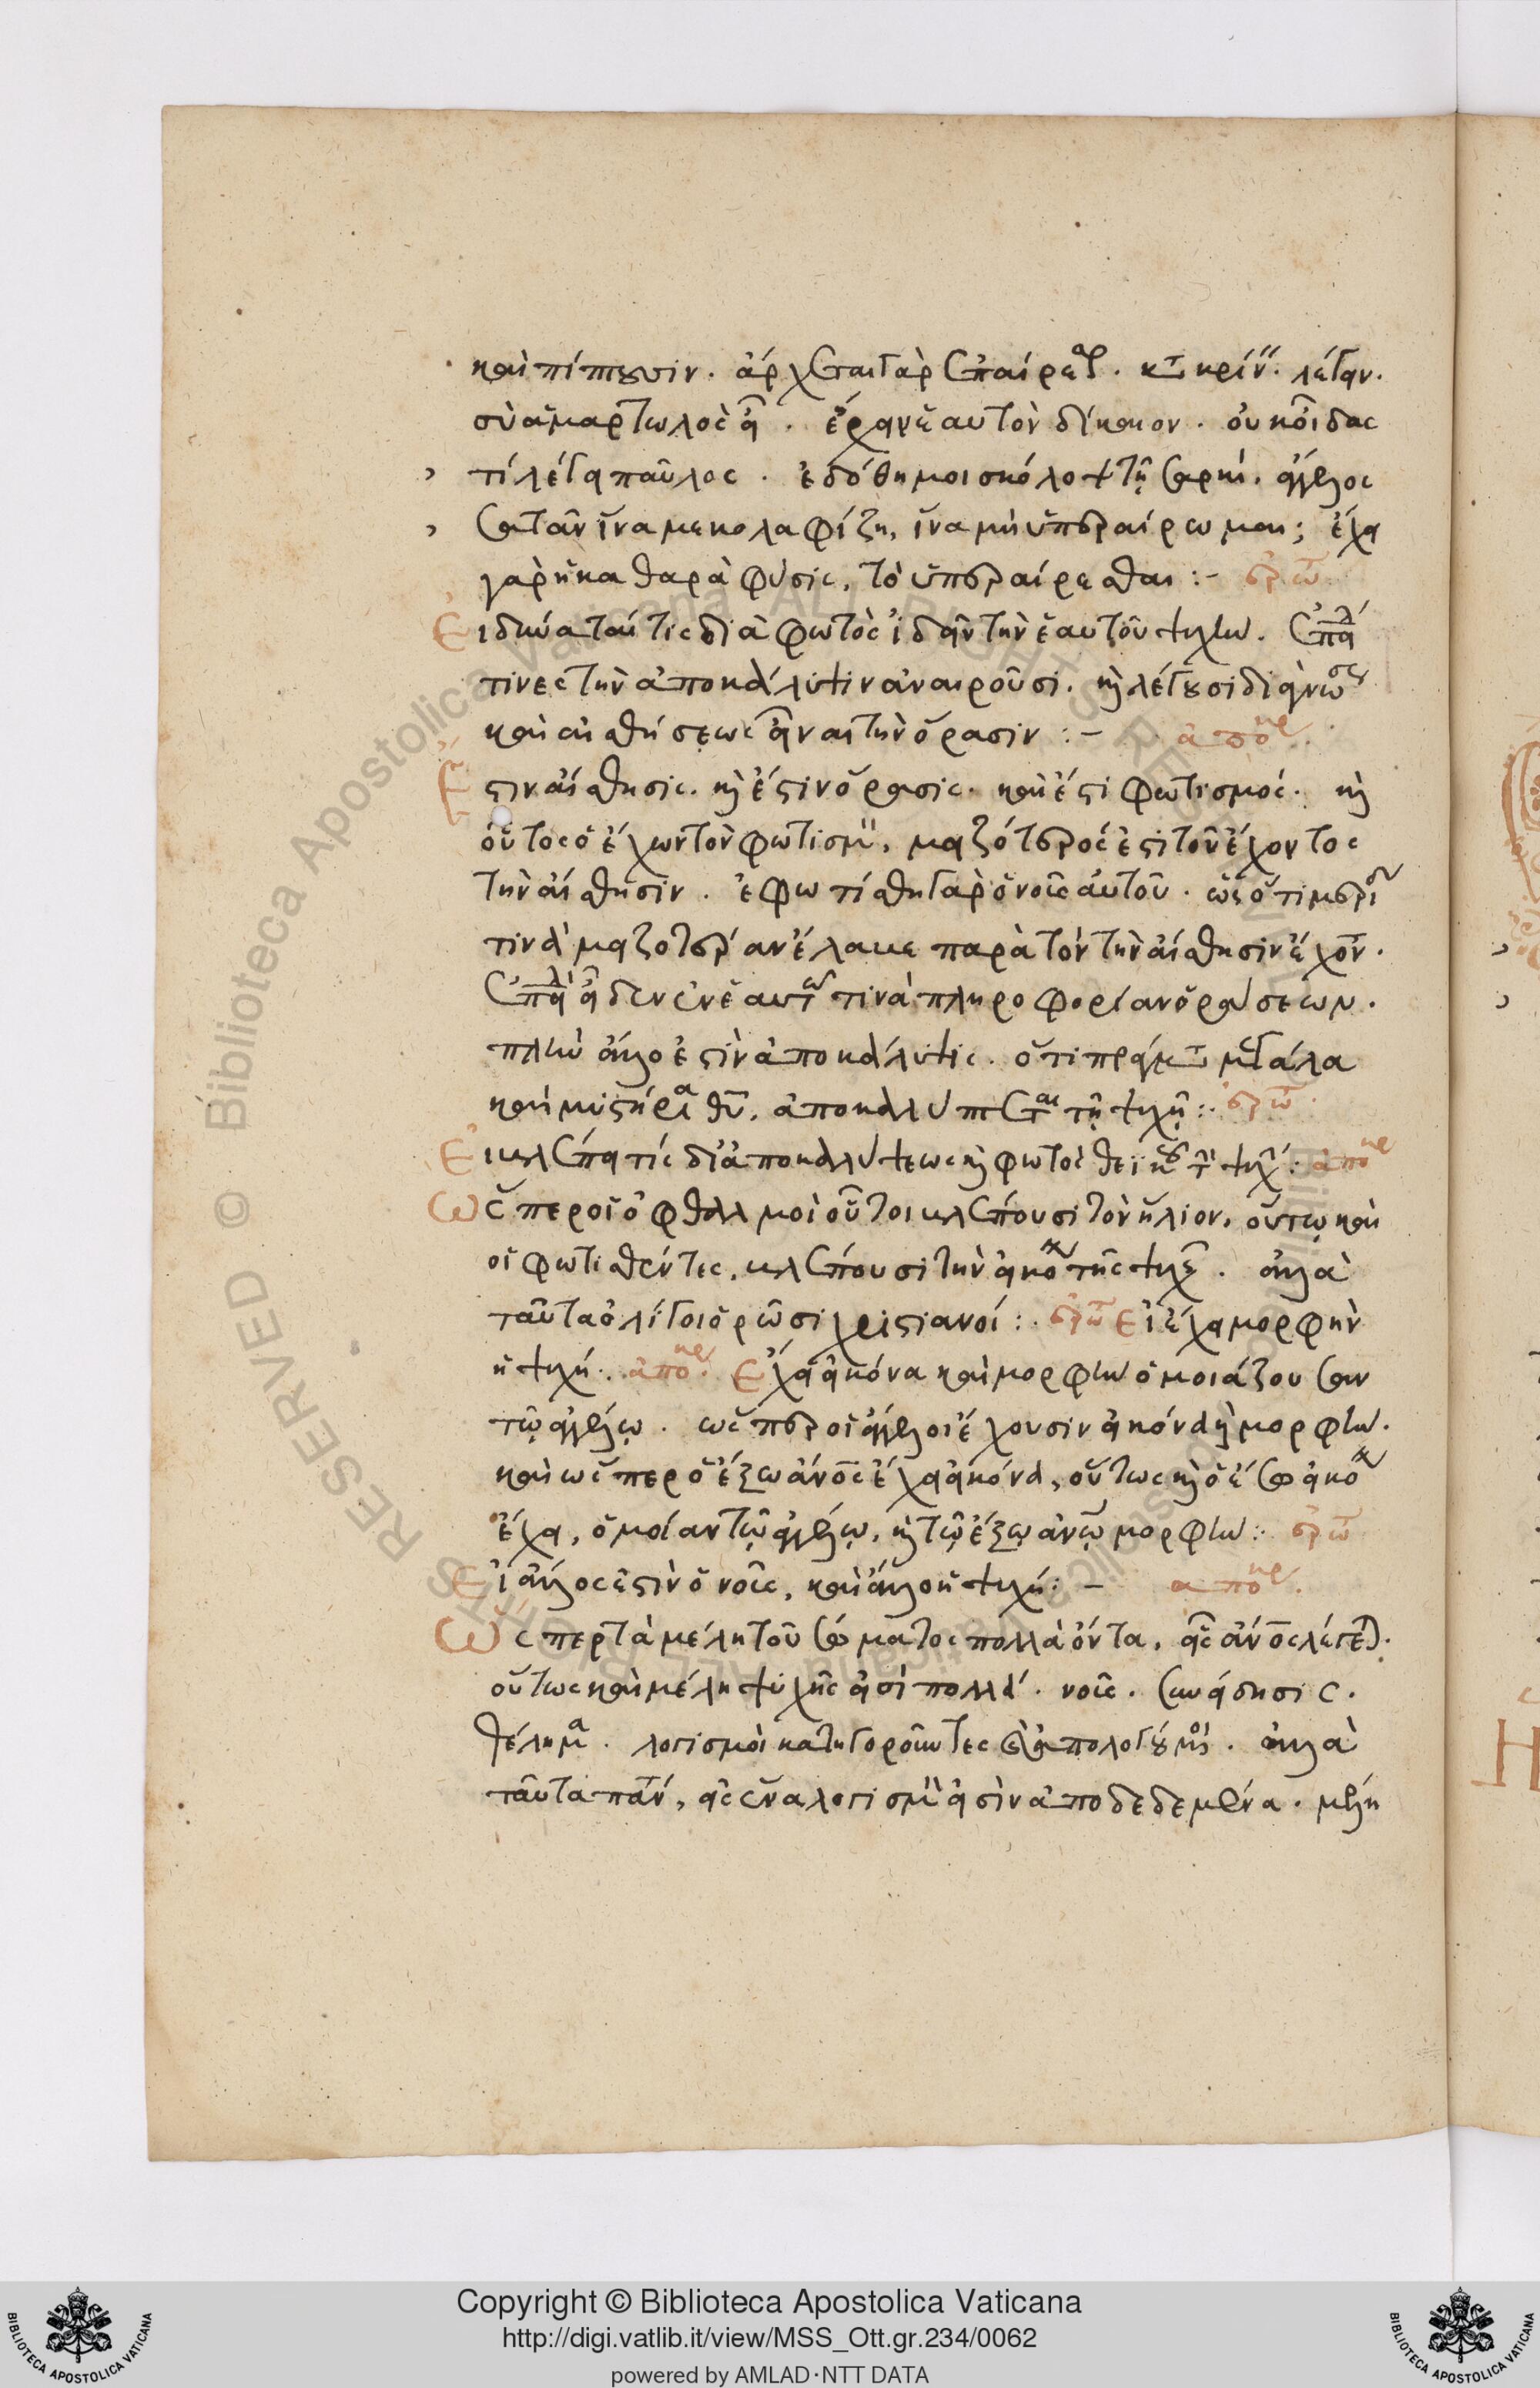 καὶ πίπτουσιν. ἄρχεται γὰρ ἐπαίρεσθαι. κατακρίνειν. λέγειν.
σὺ ἁμαρτωλὸς εἶ. ἔχειν ἑαυτὸν δίκαιον. οὐκ οἶδας
τί λέγει παῦλος. ἐδόθη μοι σκόλοψ τῇ σαρκί. ἄγγελος
σατᾶν ἵνα με κολαφίζη, ἵνα μὴ ὑπεραίρωμαι; ἔχει
γὰρ ἡ καθαρὰ φύσις, τὸ ὑπεραίρεσθαι :- ἐρώ
Εἰ δύναταί τις διὰ φωτὸς ἰδεῖν τὴν ἑαυτοῦ ψυχήν. ἐπεί
τινες τὴν ἀποκάλυψιν ἀναιροῦσι. καὶ λέγουσι διὰ γνώσεως
καὶ αἰσθήσεως εἶναι τὴν ὅρασιν :- ἀπόκ
Ἔστιν αἴσθησις. καὶ ἔστιν ὅρασις. καὶ ἔστι φωτισμός. καὶ
οὗτος ὁ ἔχων τὸν φωτισμὸν, μειζότερός ἐστι τοῦ ἔχοντος
τὴν αἴσθησιν. ἐφωτίσθη γὰρ ὁ νοῦς αὐτοῦ. ὡς ὅτι μερίδα
τινὰ μειζοτέραν ἔλαβε παρὰ τὸν τὴν αἴσθησιν ἔχοντα.
ἐπειδὴ εἶδεν ἐν ἑαυτῷ τινὰ πληροφορίαν ὁράσεων.
πλὴν ἄλλο ἐστὶν ἀποκάλυψις. ὅτι πράγματα μεγάλα
καὶ μυστήρια θῦ, ἀποκαλύπτεται τῇ ψυχῇ :· ἐρώ
Εἰ βλέπει τίς δι' ἀποκαλύψεως καὶ φωτὸς θεϊκοῦ τὴν ψυχήν : ἀπόκ
Ὥσπερ οἱ ὀφθαλμοὶ οὗτοι βλέπουσι τὸν ἥλιον, οὕτω καὶ
οἱ φωτισθέντες, βλέπουσι τὴν εἰκόνα τῆς ψυχῆς. ἀλλὰ
ταῦτα ὀλίγοι ὁρῶσι χριστιανοί :· ἐρώ Εἰ ἔχει μορφὴν
ἡ ψυχή. ἀπόκ Ἔχει εἰκόνα καὶ μορφὴν ὁμοιάζουσαν
τῷ ἀγγέλῳ. ὥσπερ οἱ ἄγγελοι ἔχουσιν εἰκόνα καὶ μορφήν.
καὶ ὥσπερ ὁ ἔξω ἄνος ἔχει εἰκόνα, οὕτως καὶ ὁ ἔσω εἰκόνα
ἔχει, ὁμοίαν τῷ ἀγγέλῳ, καὶ τῷ ἔξω ἀνῳ μορφήν :· ἐρώ
Εἰ ἄλλος ἐστὶν ὁ νοῦς, καὶ ἄλλο ἡ ψυχή :- ἀπόκ
Ὥσπερ τὰ μέλη τοῦ σώματος πολλὰ ὄντα, εἷς ἄνος λέγεται.
οὕτως καὶ μέλη ψυχῆς εἰσὶ πολλά. νοῦς. συνείδησις.
θέλημα. λογισμοὶ κατηγοροῦντες καὶ ἀπολογούμενοι. ἀλλὰ
ταῦτα πάντα, εἰς ἕνα λογισμὸν εἰσὶν ἀποδεδεμένα. μέλη